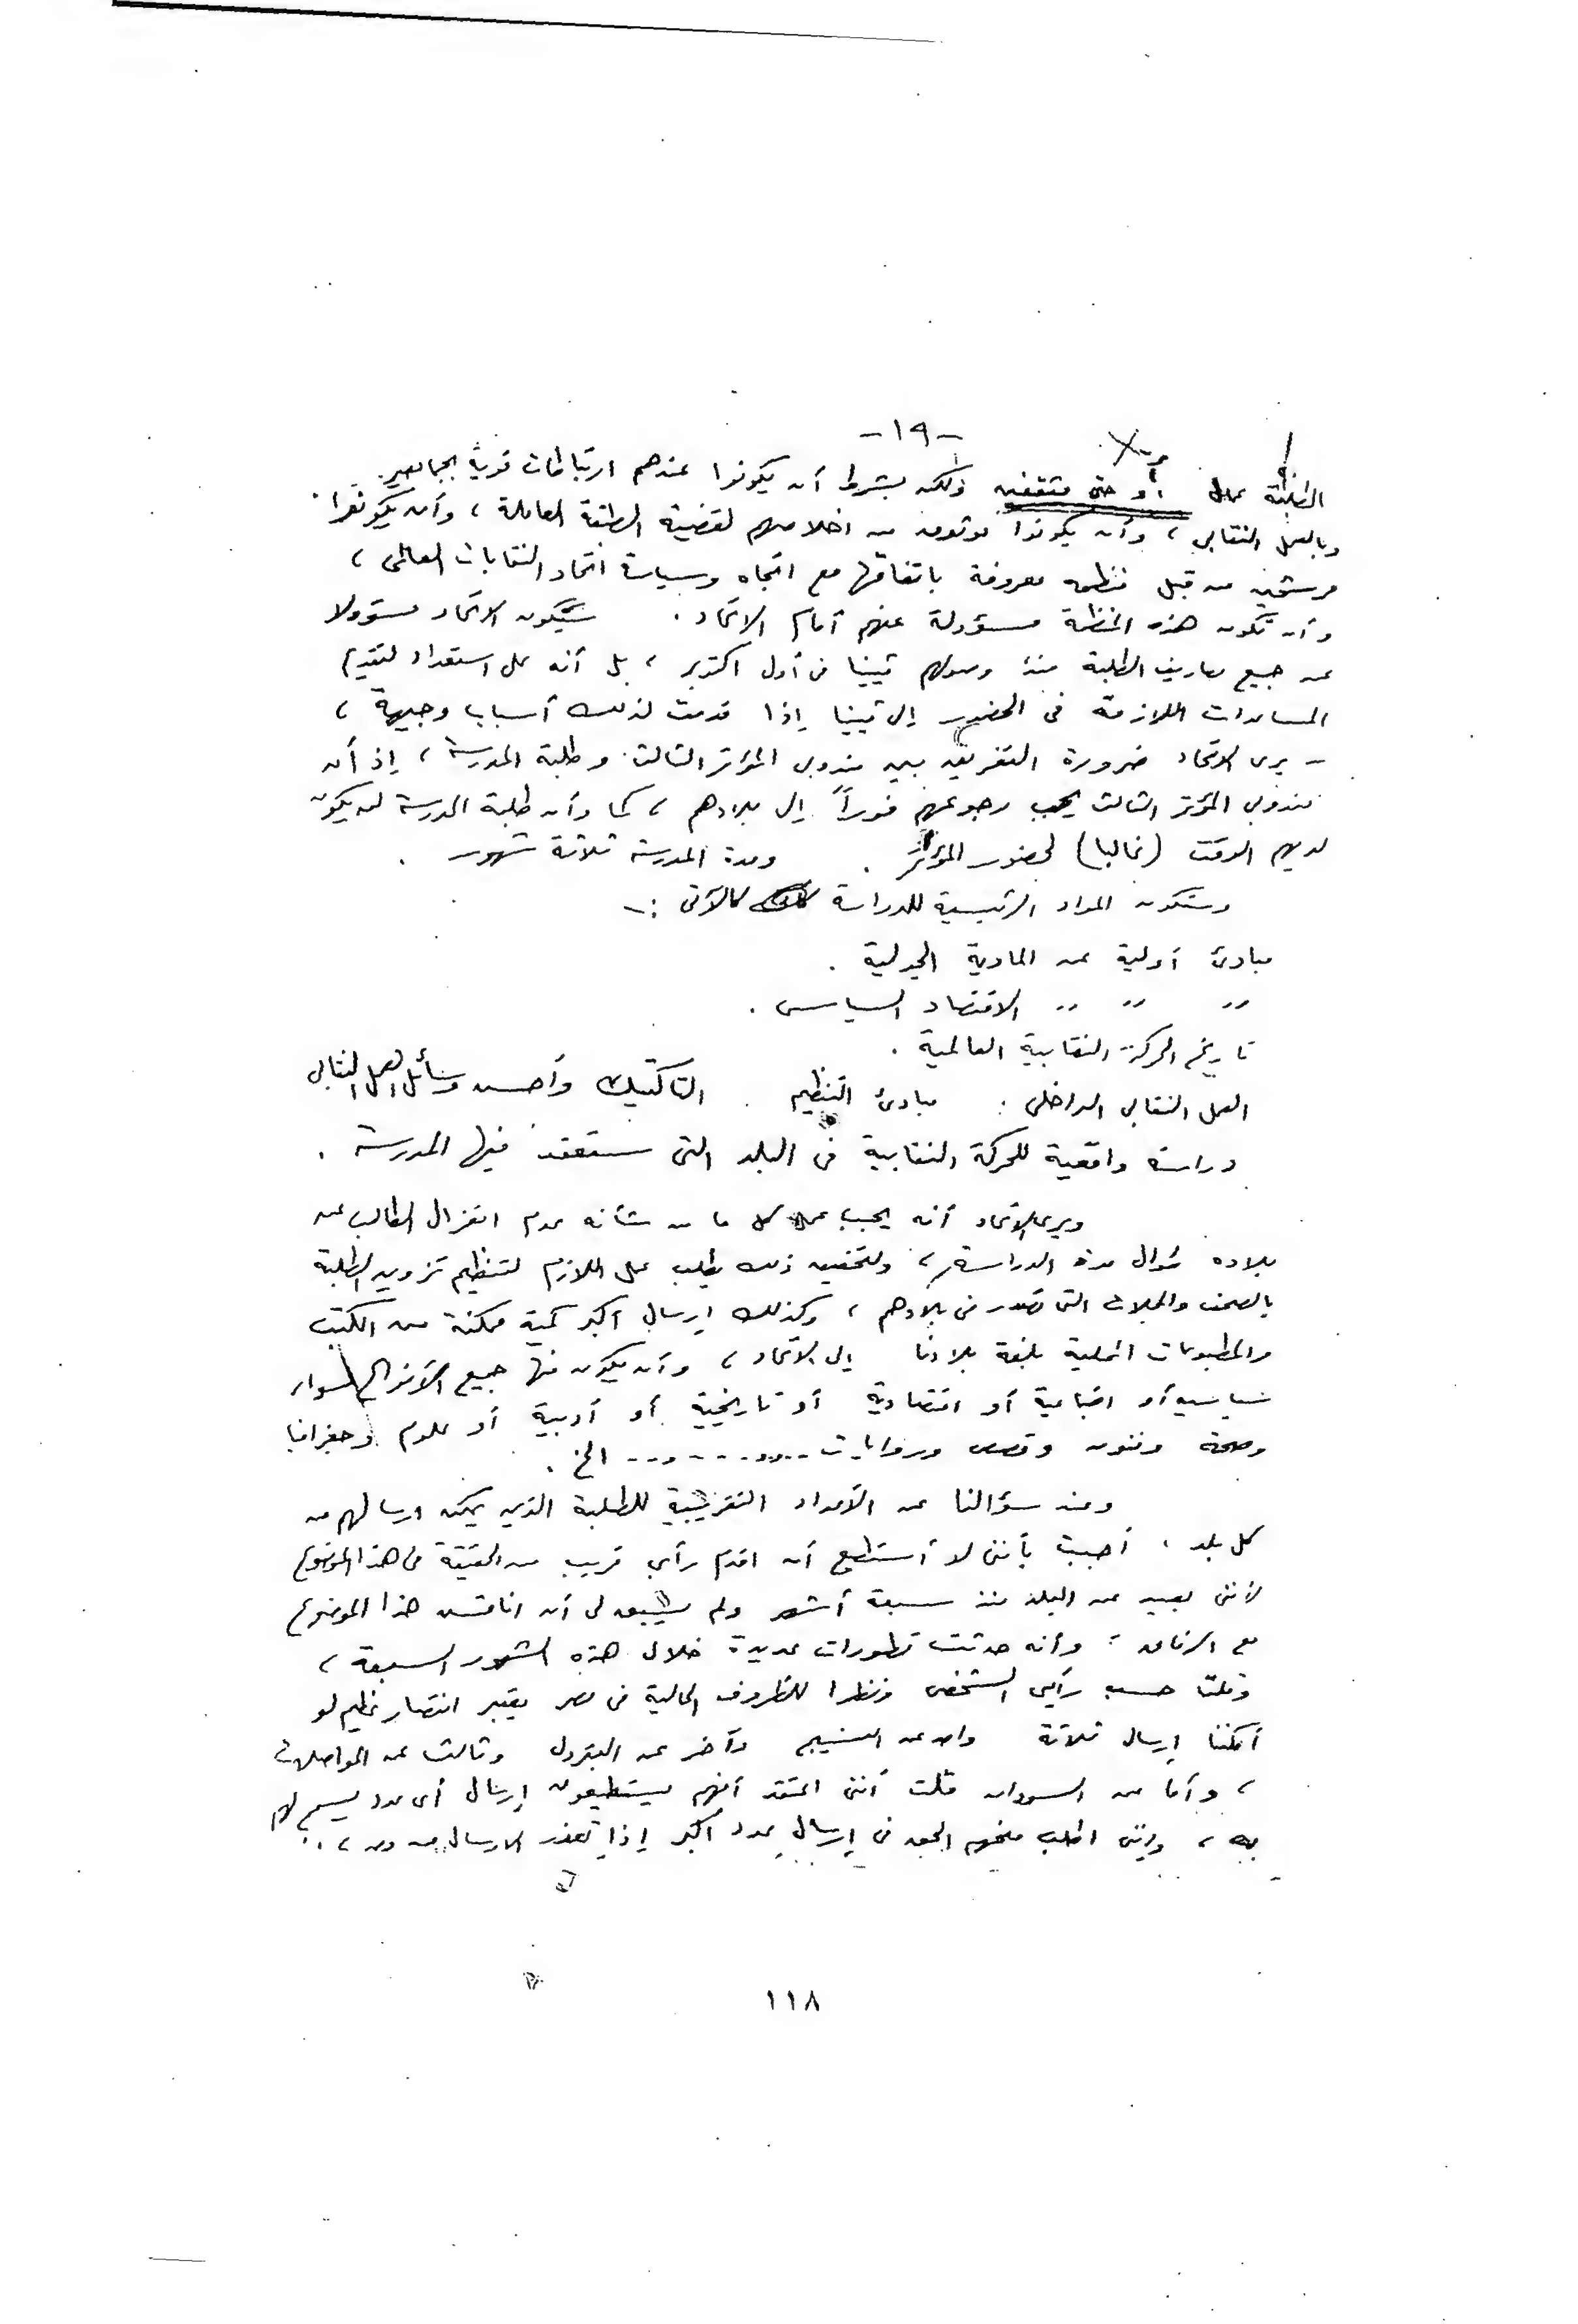 -١٩-
الطلبة عمال أو حتى مثقفين ولكن بشرط أن يكونوا عندهم ارتباطات قوية بالجماهير
وبالعمل النقابى ، وأن يكونوا موثوق من اخلاصهم لقضية الطبقة العاملة ، وأن يكونوا
مرشحين من قبل منظمة معروفة باتفاقها مع اتجاه وسياسة اتحاد النقابات العالمى ،
وأن تكون هذه المنظمة مسؤولة عنهم أمام الاتحاد . سيكون الاتحاد مسؤولا
عن جميع مصاريف الطلبة منذ وصولهم ڤيينا فى أول اكتوبر ، بل أنه على استعداد لتقديم
المساعدات اللازمة فى الحضور إلى ڤيينا إذا قدمت لذلك أسباب وجيهة ،
- يرى الاتحاد ضرورة التفريق بين مندوبى المؤتمر الثالث وطلبة المدرسة ، إذ أن
مندوبى المؤتمر الثالث يجب رجوعهم فوراً إلى بلادهم ، كما وأن طلبة المدرسة لن يكون
لديهم الوقت (غالبا) لحضور المؤتمر . ومدة المدرسة ثلاثة شهور .
وستكون المواد الرئيسية للدراسة كالآتى :-
مبادئ أولية عن المادية الجدلية .
〃 〃 〃 الاقتصاد السياسى .
تاريخ الحركة النقابية العالمية .
العمل النقابى الداخلى : مبادئ التنظيم . التاكتيك وأحسن وسائل العمل النقابى
دراسة واقعية للحركة النقابية فى البلد التى ستعقد فيها المدرسة .
ويرى الاتحاد أنه يجب عمل كل ما من شأنه عدم انعزال الطالب عن
بلاده طوال مدة الدراسة ، ولتحقيق ذلك يطلب عمل اللازم لتنظيم تزويد الطلبة
بالصحف والمجلات التى تصدر فى بلادهم ، وكذلك ارسال أكبر كمية ممكنة من الكتب
والمطبوعات المحلية بلغة بلادنا إلى الاتحاد ، وأن يكون منها جميع الأنواع سواء
سياسية أو اجتماعية أو اقتصادية أو تاريخية أو أدبية أو علوم وجغرافيا
وصحة وفنون وقصص وروايات ........... الخ .
وعند سؤالنا عن الأعداد التقريبية للطلبة الذين يمكن ارسالهم من
كل بلد ، أجبت بأننى لا أستطيع أن اقدم رأى قريب من الحقيقة فى هذا الموضوع
لأننى بعيد عن البلد منذ سبعة أشهر ولم يسبق لى أن اناقش هذا الموضوع
مع الرفاق ، وأنه حدثت تطورات عديدة خلال هذه الشهور السبعة ،
وقلت حسب رأيى الشخصى ونظرا للظروف الحالية فى مصر يعتبر انتصار عظيم لو
أمكننا إرسال ثلاثة واحد عن النسيج وآخر عن البترول وثالث عن المواصلات
، وأما عن السودان قلت أننى اعتقد أنهم يستطيعون إرسال أى عدد يسمح لهم
به ، وإننى اطلب منحهم الحق فى إرسال عدد أكبر إذا تعذر الارسال من مصر ، .
١١٨